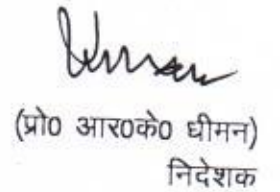 (प्रो0 आर0के0 धीमन)
निदेशक